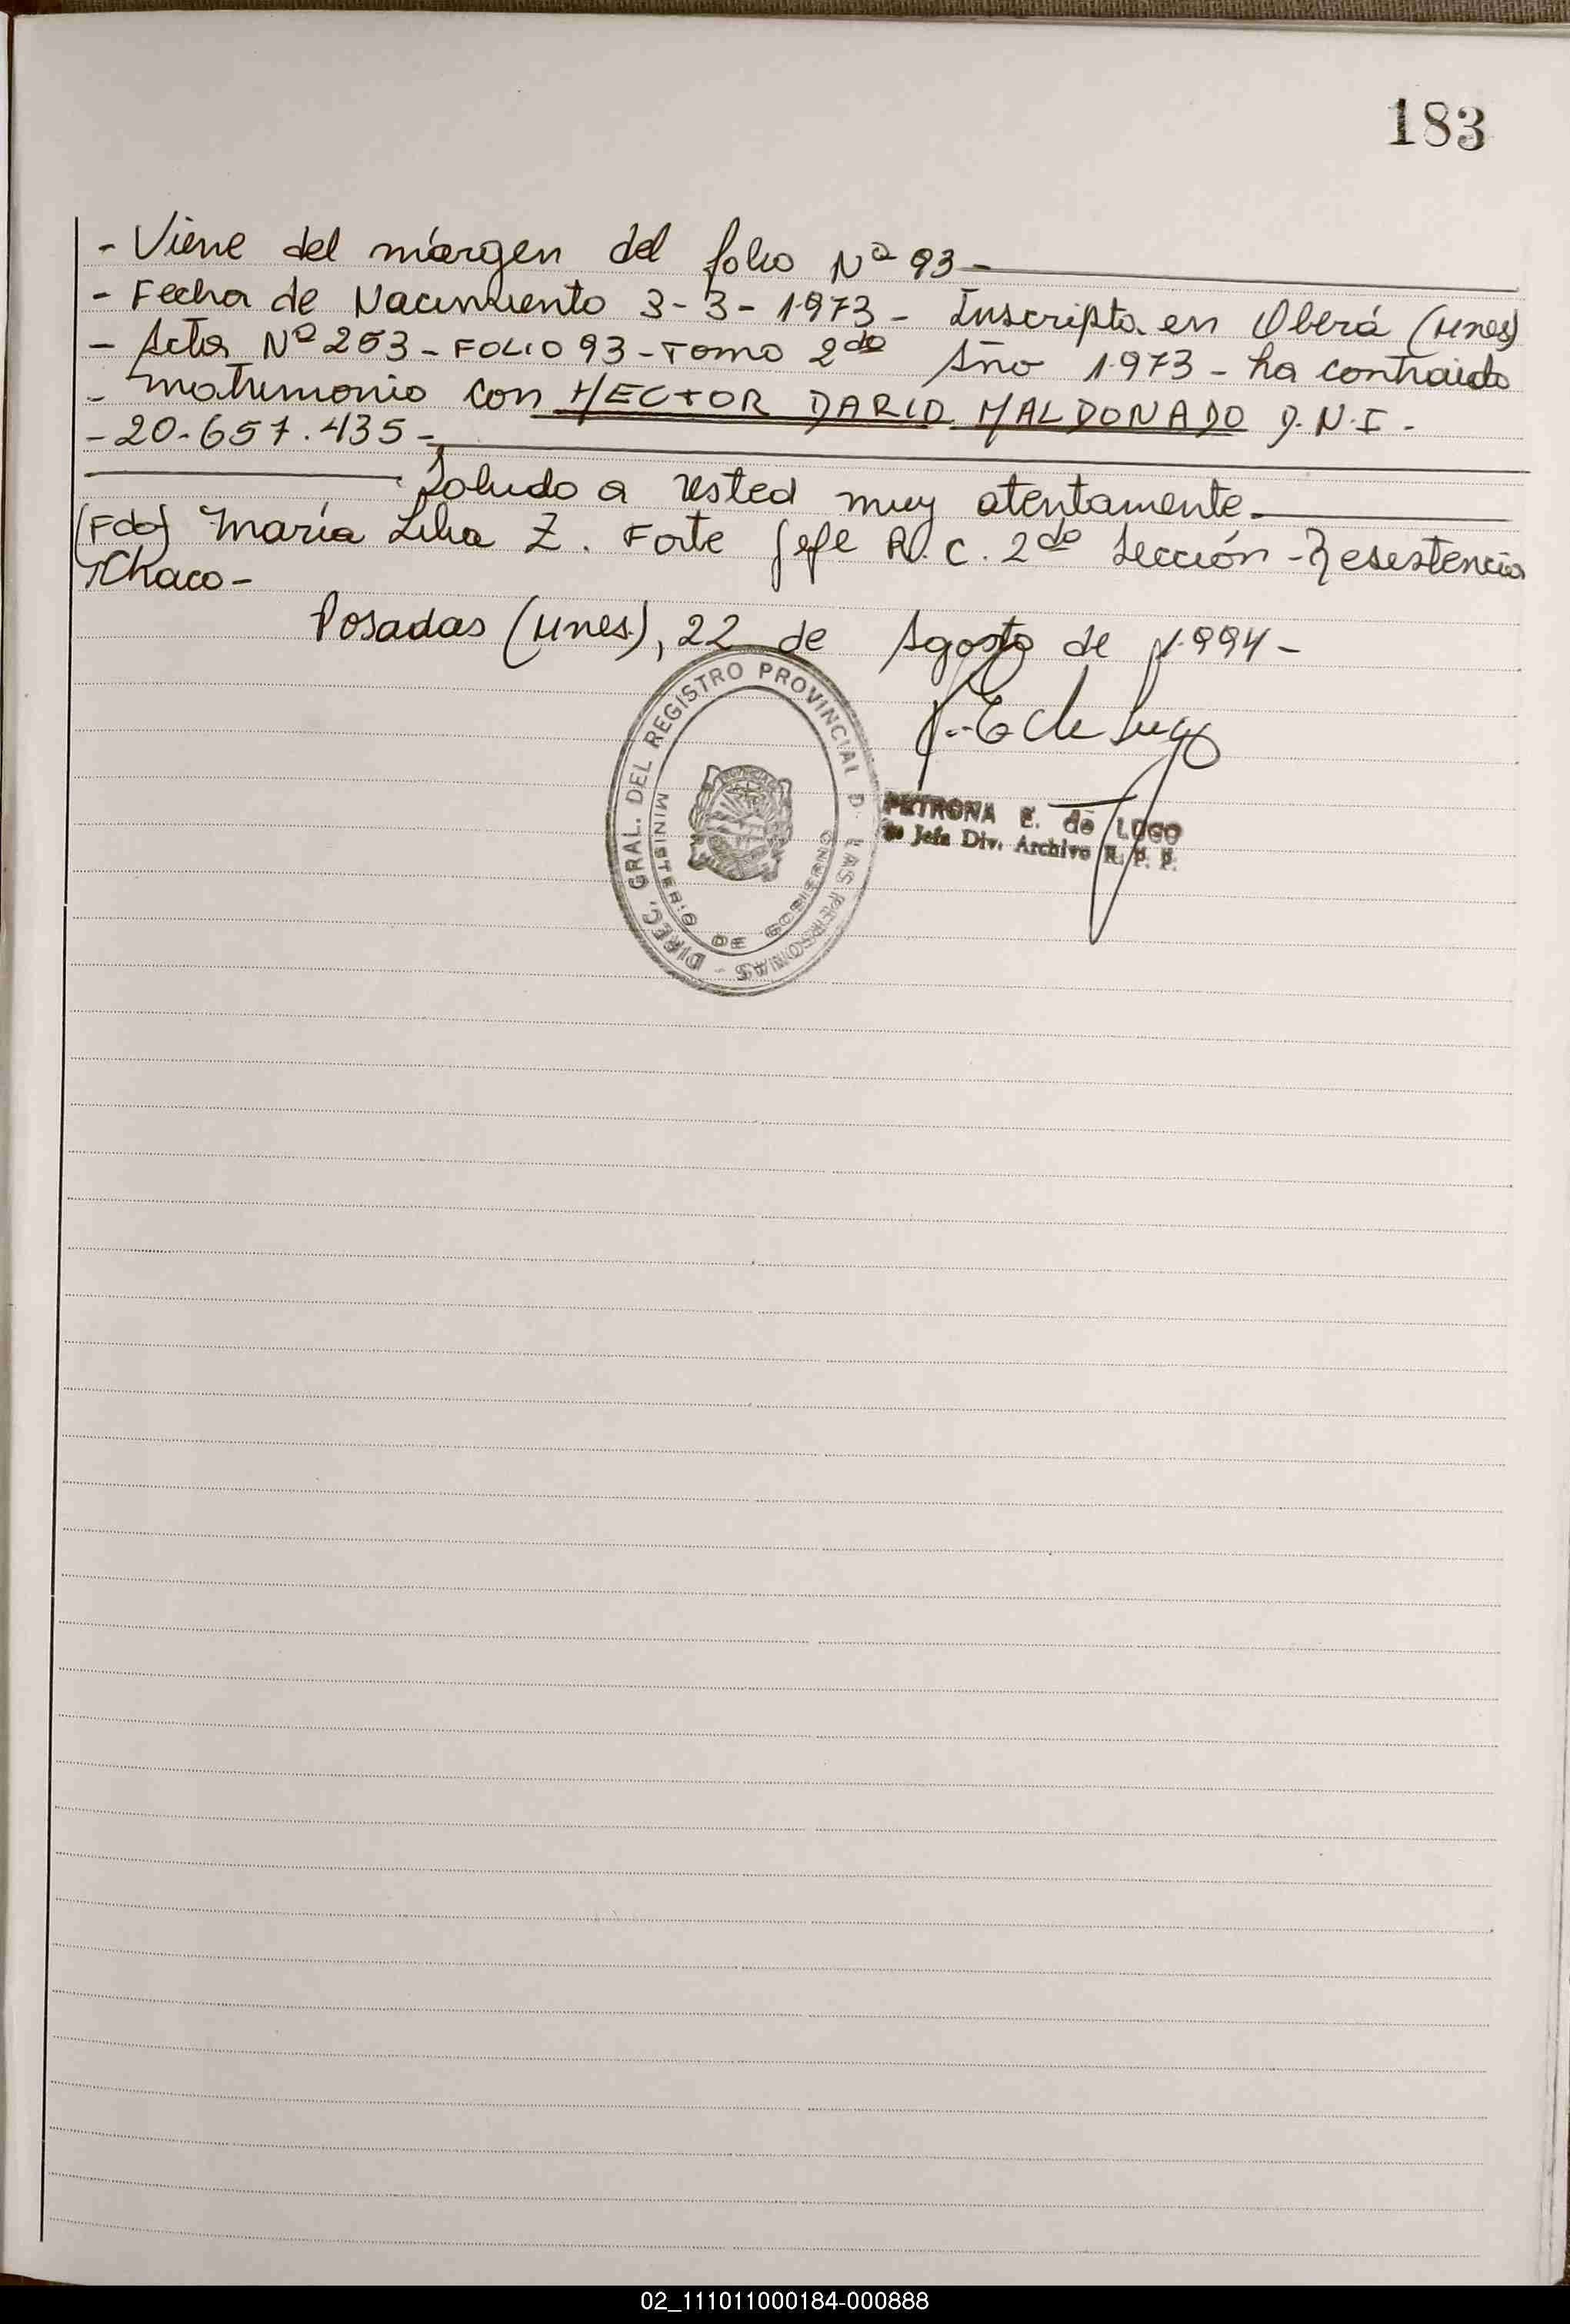 183
- Viene del márgen del folio Nº 93 -
- Fecha de Nacimiento 3-3-1973 - Inscripta en Oberá (Mnes)
- Acta Nº 253 - FOLIO 93 - Tomo 2do Año 1973 - ha contraido
- matrimonio con HECTOR DARIO MALDONADO D.N.I -
- 20.657.435 -
Saludo a usted muy atentamente.
(Fdo) María Lilia Z. Forte Jefe R.C. 2do Sección - Resistencia
Chaco -
Posadas (Mnes), 22 de Agosto de 1.994 -
DIREC. GRAL. DEL REGISTRO PROVINCIAL D LAS PERSONAS -
MINISTERIO DE GOBIERNO
P. E de Lugo
PETRONA E. de LUGO
Jefa Div. Archivo R. P. P.
02_111011000184-000888